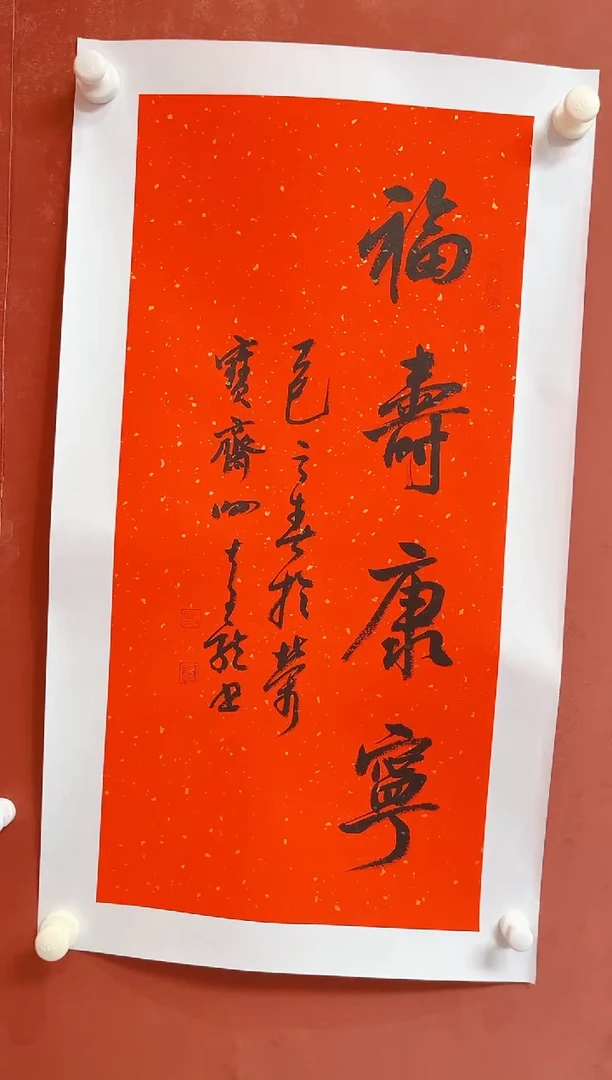 福壽康寧
乙巳之春於榮
寶齋